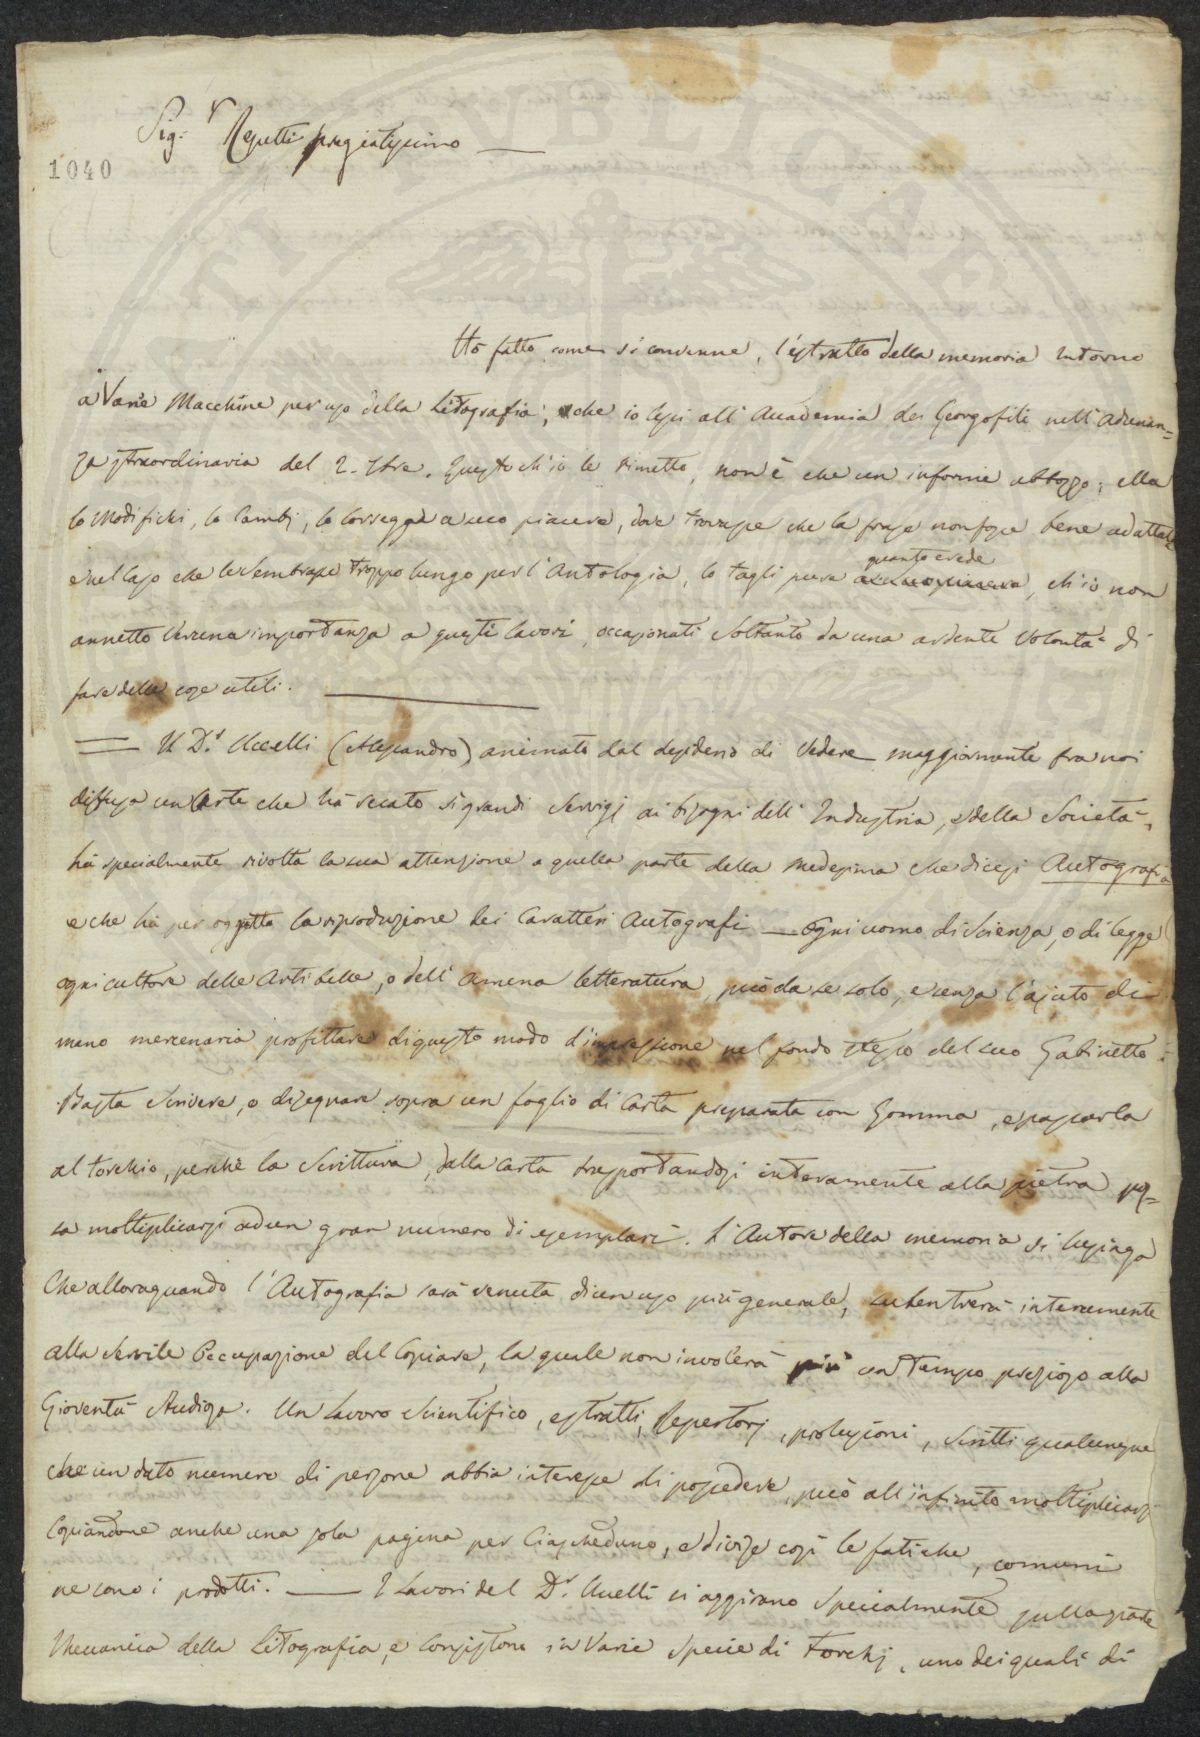 Sig.r Repetti pregiatissimo
1040
Ho fatto, come si convenne, l'estratto della memoria intorno
a Varie Macchine per uso della Litografia, che io lessi all'Accademia dei Georgofili nell'adunan=
za straordinaria del 2. 7bre. Questo ch'io le rimetto, non è che un informe abbozzo; ella
lo Modifichi, lo Cambj, lo Corregga a suo piacere, dove trovasse che la frase non fosse bene adattata
e nel caso che le sembrasse troppo lungo per l'Antologia, lo tagli pure quanto crede, ch'io non
annetto veruna importanza a questi lavori, occasionati soltanto da una ardente Volontà di
fare delle cose utili.
Il D.r Uccelli (Alessandro) animato dal desiderio di Vedere maggiormente fra noi
diffusa un'Arte che ha recato sì grandi servigj ai bisogni dell'Industria, e della Società,
ha specialmente rivolta la sua attenzione a quella parte della medesima che dicesi Autografia
e che ha per oggetto la riproduzione dei Caratteri Autografi — Ogni uomo di Scienza, o di legge
ogni cultore delle Arti belle, o dell'amena letteratura, può da se solo, e senza l'ajuto di
mano mercenaria profittare di questo modo d'impressione nel fondo stesso del suo Gabinetto.
Basta scrivere, o disegnare sopra un foglio di Carta preparata con Gomma, e passarla
al torchio, perchè la Scrittura, dalla carta trasportandosi interamente alla pietra pos=
sa moltiplicarsi ad un gran numero di esemplari. L'Autore della memoria si lusinga
Che alloraquando l'Autografia sarà venuta di un uso più generale, subentrerà interamente
alla servile Occupazione del Copiare, la quale non involerà più un tempo prezioso alla
Gioventù studiosa. Un Lavoro Scientifico, estratti, Repertorj, prolusioni, scritti qualunque
che un dato numero di persone abbia interesse di possedere, può all'infinito moltiplicarsi
Copiandone anche una sola pagina per Ciascheduno, e divise così le fatiche, comuni
ne sono i prodotti. — I Lavori del D.r Uccelli si aggirano Specialmente sulla parte
Meccanica della Litografia, e Consistono in Varie specie di Torchj, uno dei quali di